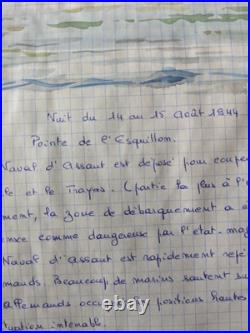 Nuit du 14 au 15 Août 1944
Pointe de l'Esquillon.
Naval d'Assaut est déposé pour coupe
le et le Trayas. (partie la plus à l'
ment, la zone de débarquement a é
comme dangereuse par l'état-maj
Naval d'Assaut est rapidement repé
mands. Beaucoup de marins sautent su
allemands occup positions hautes
tuation intenable.